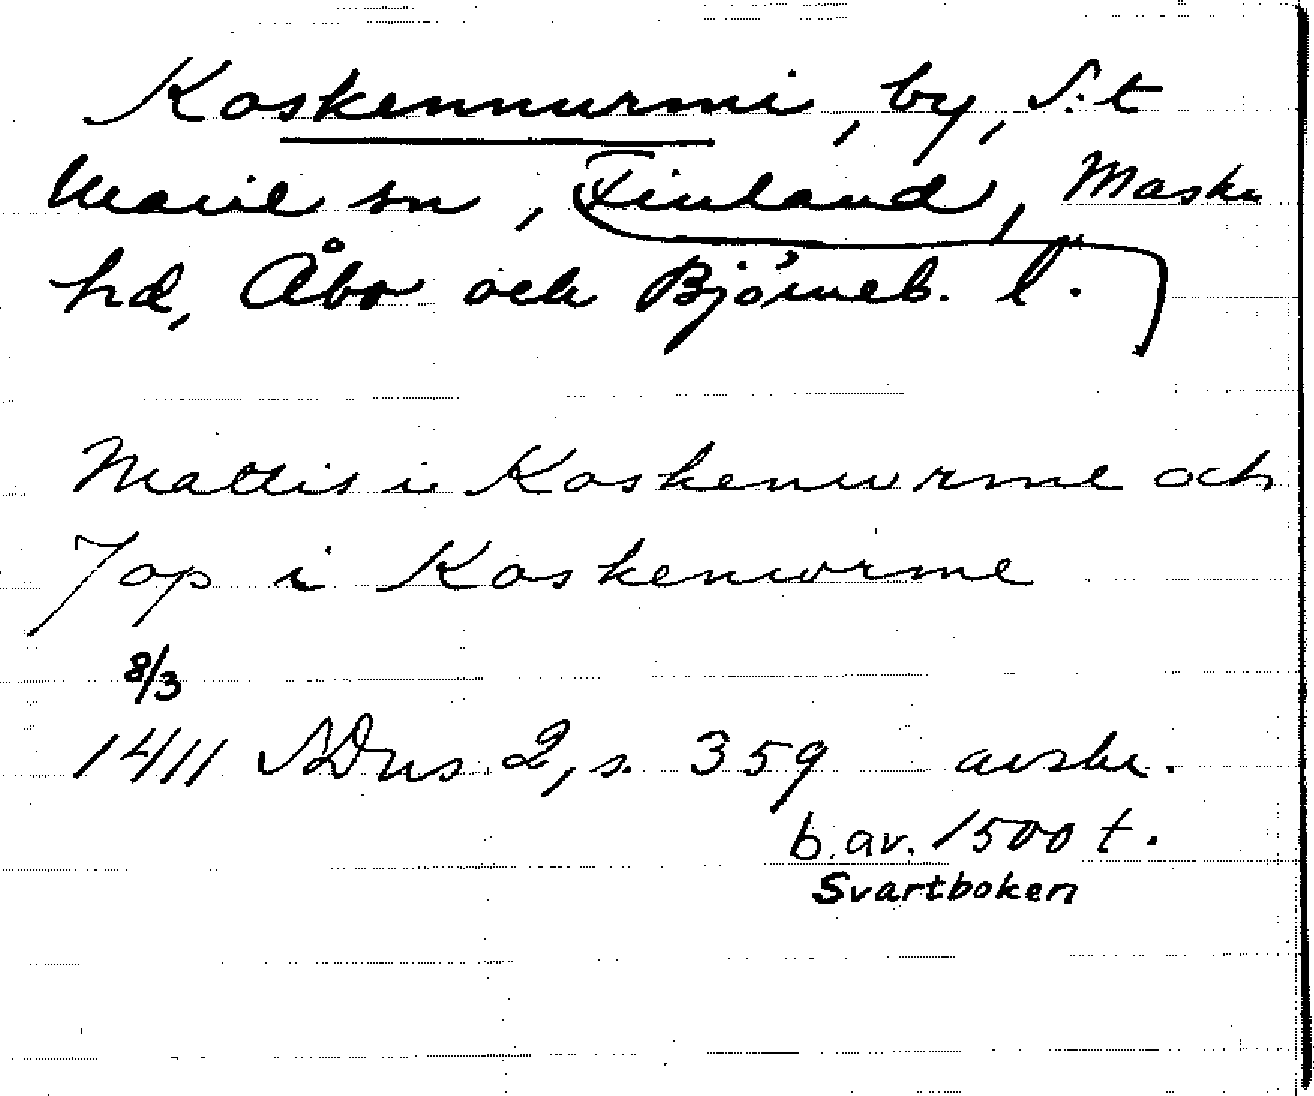 Koskennurmi, by, S:t
Marie sn, Finland, Masku
hd, Åbo och Björneb. l.
Mattis i Koskenwrme och
Jop i Koskenworme
8/3
1411 SDns 2, s. 359 avskr.
b. av. 1500 t.
Svartboken